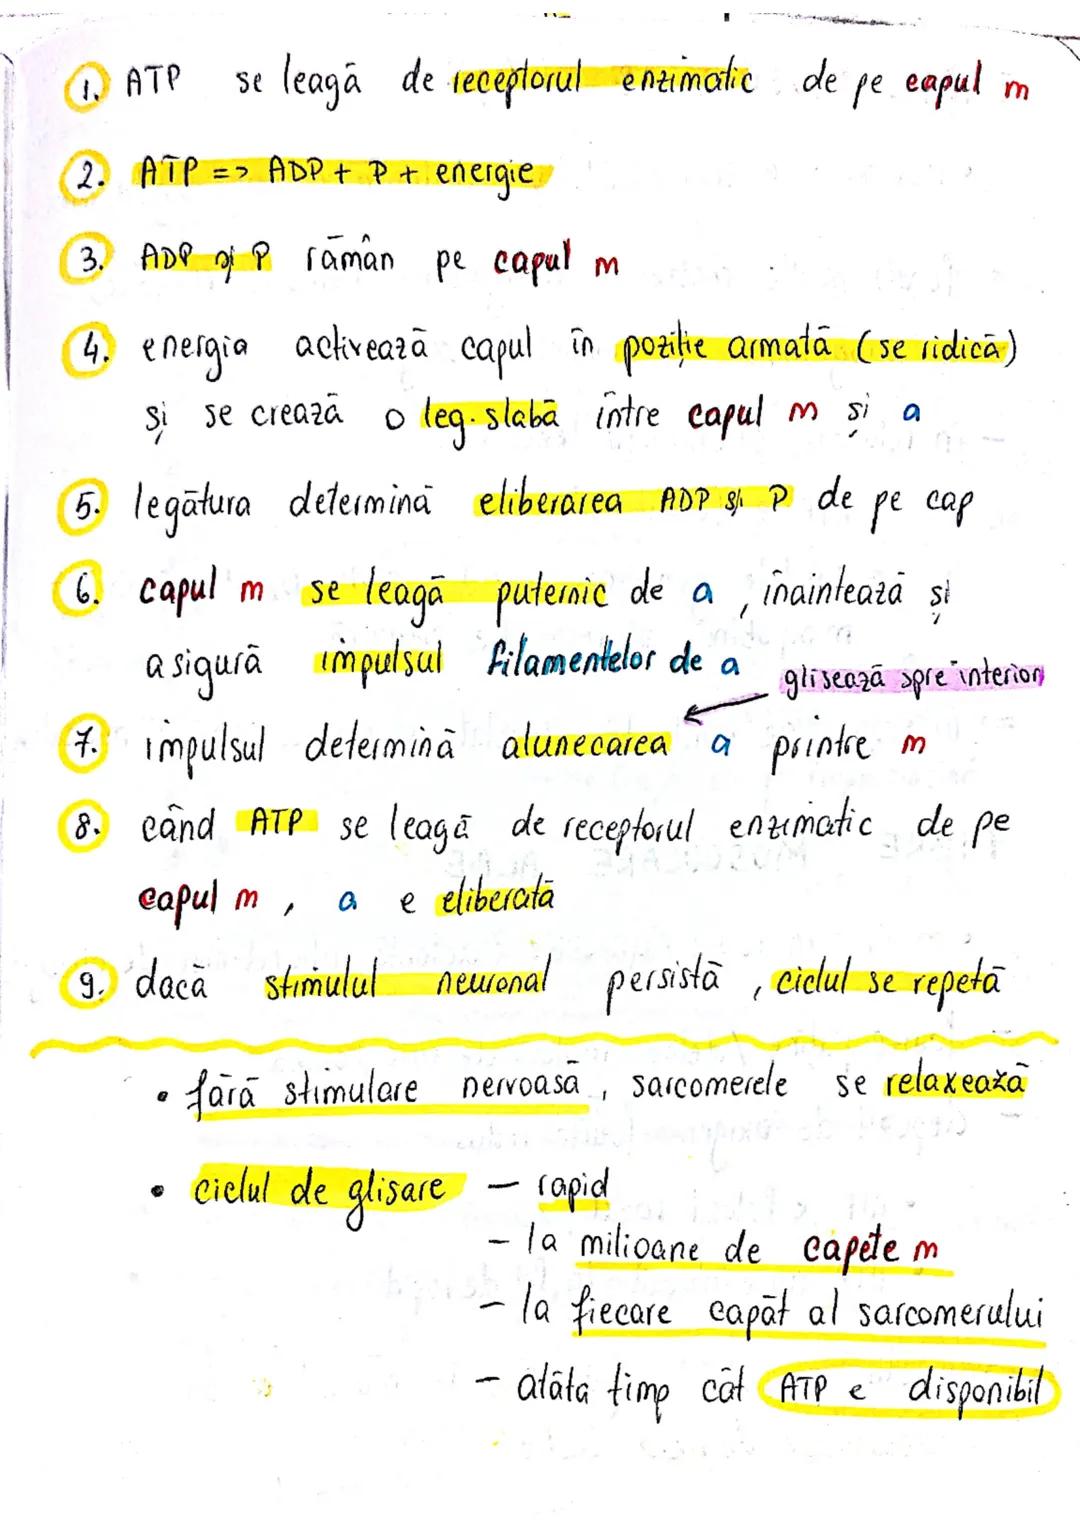 1. ATP se leagă de receptorul enzimatic de pe capul m
2. ATP => ADP + P + energie
3. ADP și P rămân pe capul m
4. energia activează capul în poziție armată (se ridică)
și se crează o leg. slabă între capul m și a
5. legătura determină eliberarea ADP și P de pe cap
6. capul m se leagă puternic de a, înaintează și
asigură impulsul filamentelor de a
glisează spre interior
7. impulsul determină alunecarea a printre m
8. când ATP se leagă de receptorul enzimatic de pe
capul m, a e eliberată
9. dacă stimulul neuronal persistă, ciclul se repetă
• fără stimulare nervoasă, sarcomerele se relaxează
• ciclul de glisare – rapid
– la milioane de capete m
– la fiecare capăt al sarcomerului
– atâta timp cât ATP e disponibil